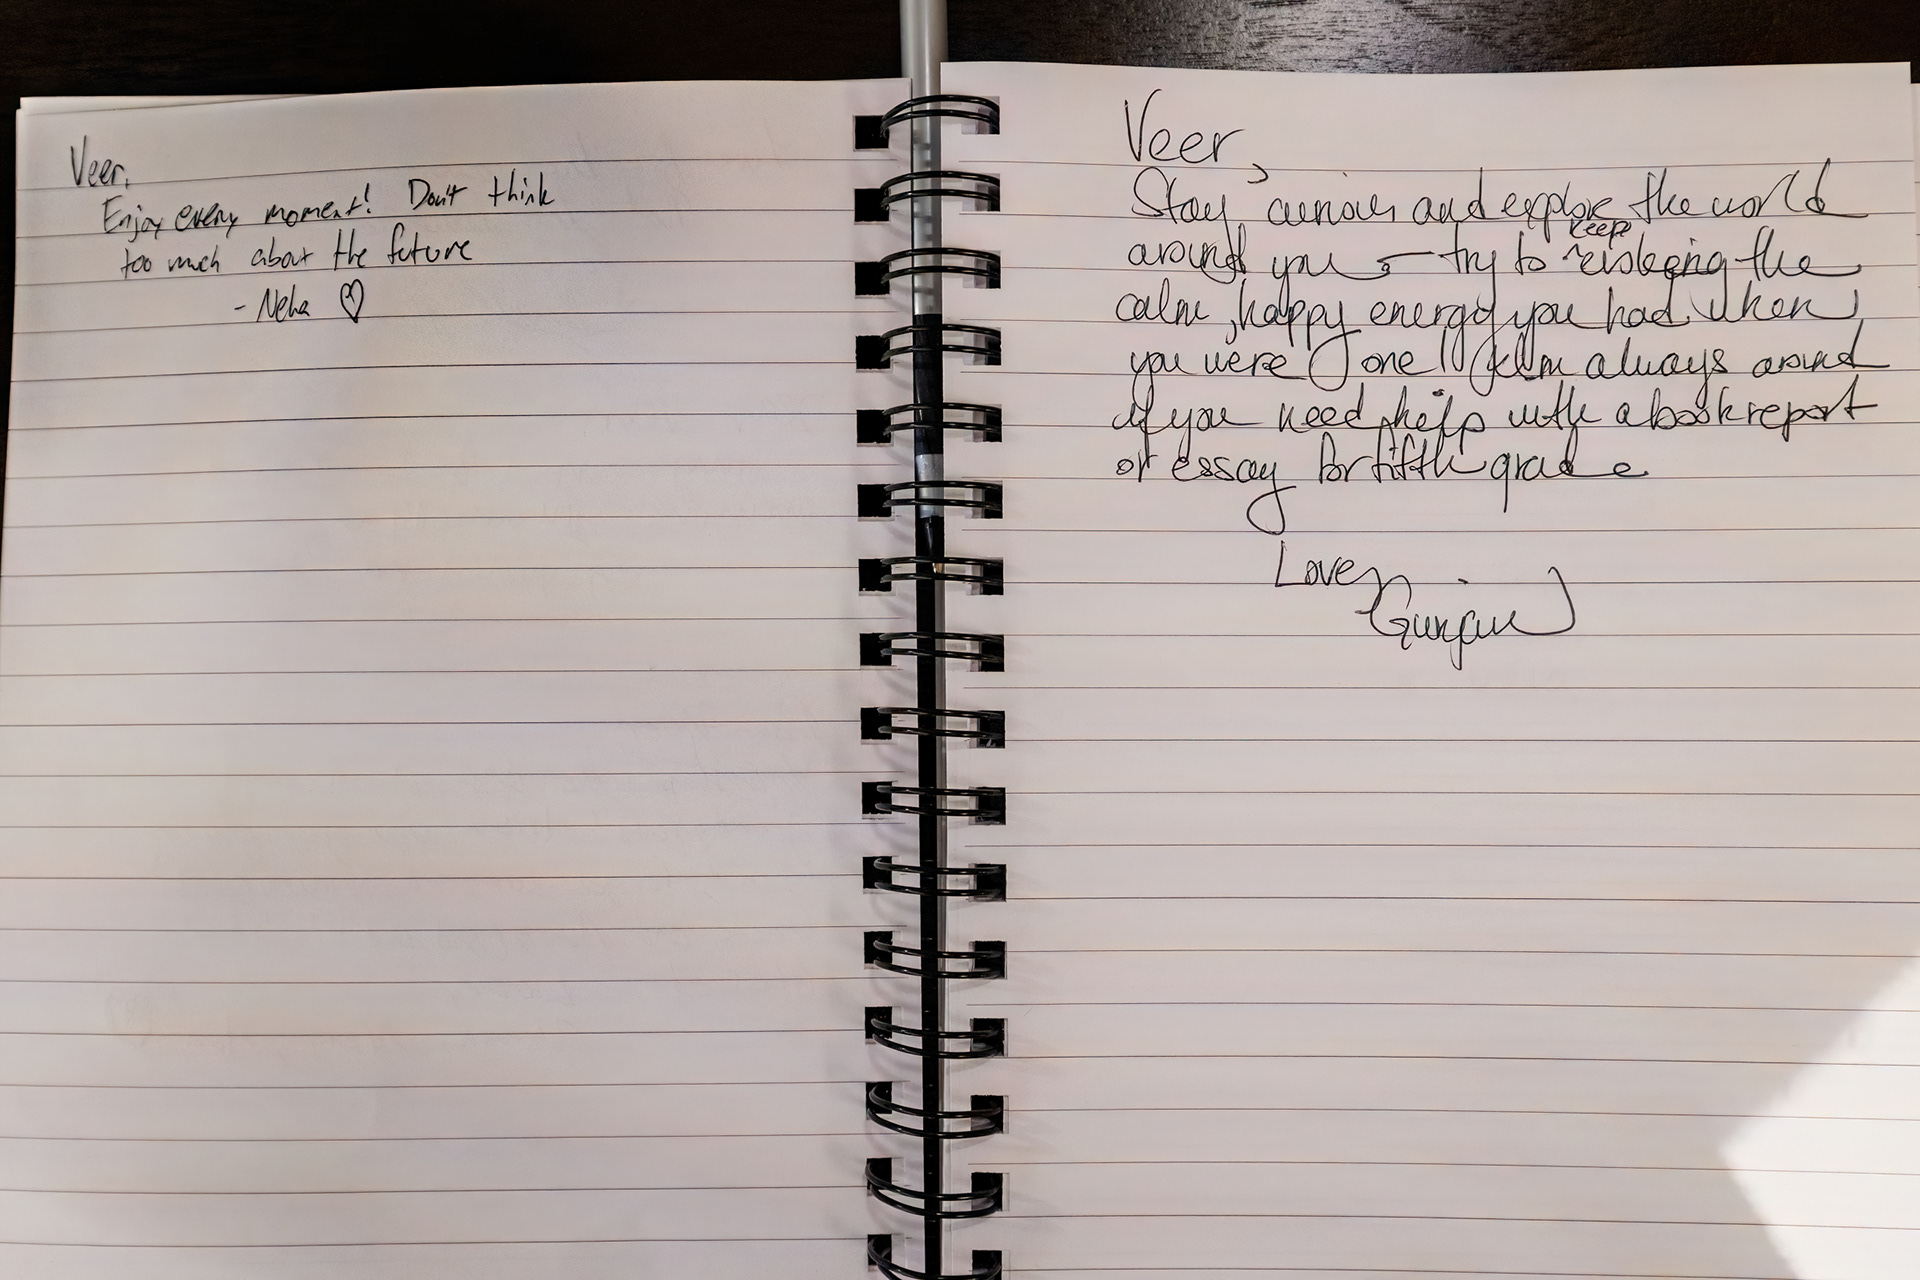 Veer,
Enjoy every moment! Don't think
too much about the future
- Neha ♡
Veer,
Stay curious and explore the world
around you - try to keep
the
calm, happy energy you had when
you were one! I'm always around
if you need help with a book report
or essay for fifth grade
Love,
Gunjan